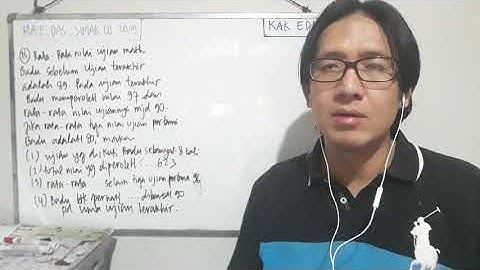 MAT. DAS. SIMAK UI 2019
KAK ED
Rata-Rata nilai ujian math
Badu sebelum Ujian terakhir
adalah 89. Pada ujian terakhir
Badu memperoleh nilai 97 dan
rata-rata nilai ujiannya mjd 90.
Jika rata-rata tiga nilai ujian pertama
Badu adalah 80, maka
(1) ujian yg diikuti Badu sebanyak 8 kali
(2) total nilai yg diperoleh ... 623
(3) rata-rata selain tiga ujian pertama 96
(4) Badu pernah ... dibawah 90
pd lima ujian terakhir.